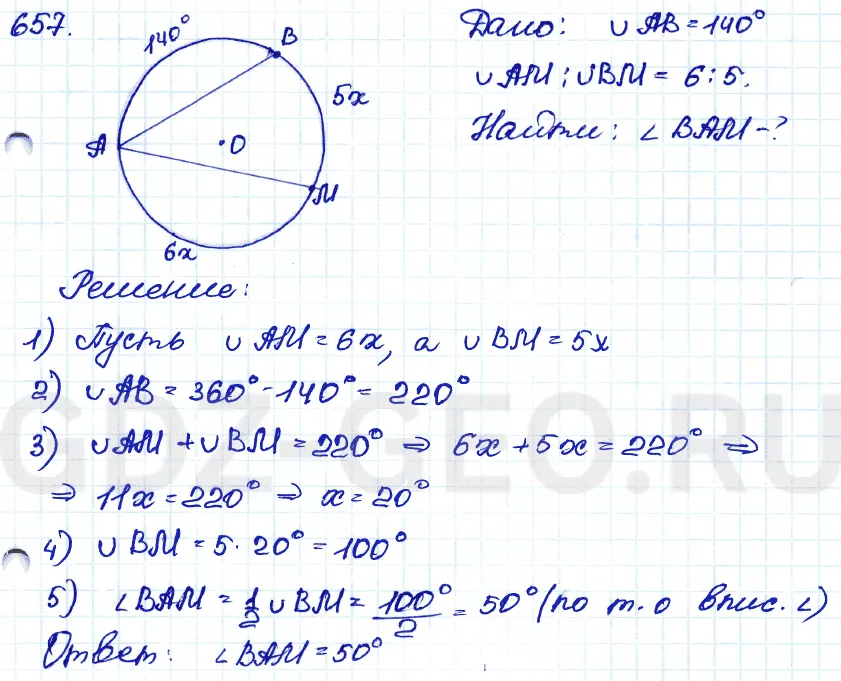 657.
140°
B
5x
A
O
M
6x
Дано: ∪ AB = 140°
∪ AM : ∪ BM = 6 : 5.
Найти: ∠ BAM - ?
Решение:
1) Пусть ∪ AM = 6x, а ∪ BM = 5x
2) ∪ AB = 360° - 140° = 220°
3) ∪ AM + ∪ BM = 220° ⇒ 6x + 5x = 220° ⇒
⇒ 11x = 220° ⇒ x = 20°
4) ∪ BM = 5 · 20° = 100°
5) ∠ BAM = 1/2 ∪ BM = 100°/2 = 50° (по т. о впис. ∠)
Ответ: ∠ BAM = 50°
GDZ-GEO.RU